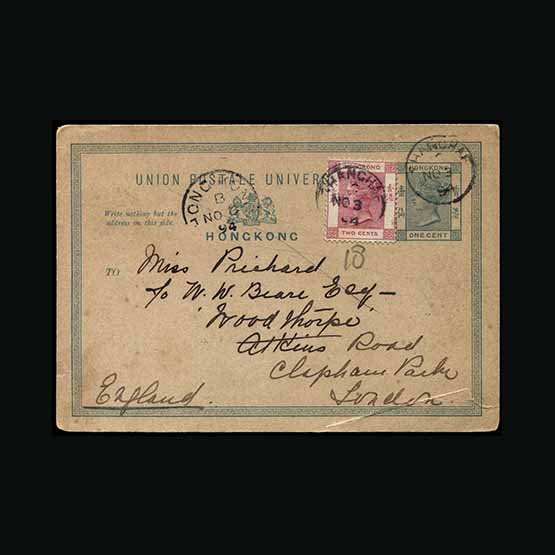 UNION POSTALE UNIVER
HONGKONG
Write nothing but the
address on this side.
HONGKONG
TWO CENTS
HONGKONG
ONE CENT
HONGKONG
B
NO
94
SHANGHAI
NO 3
94
SHANGHAI
NO
18
TO
Miss Prichard
c/o W. W. Beare Esq –
'Woodthorpe'
Atkins Road
Clapham Park
London.
England.